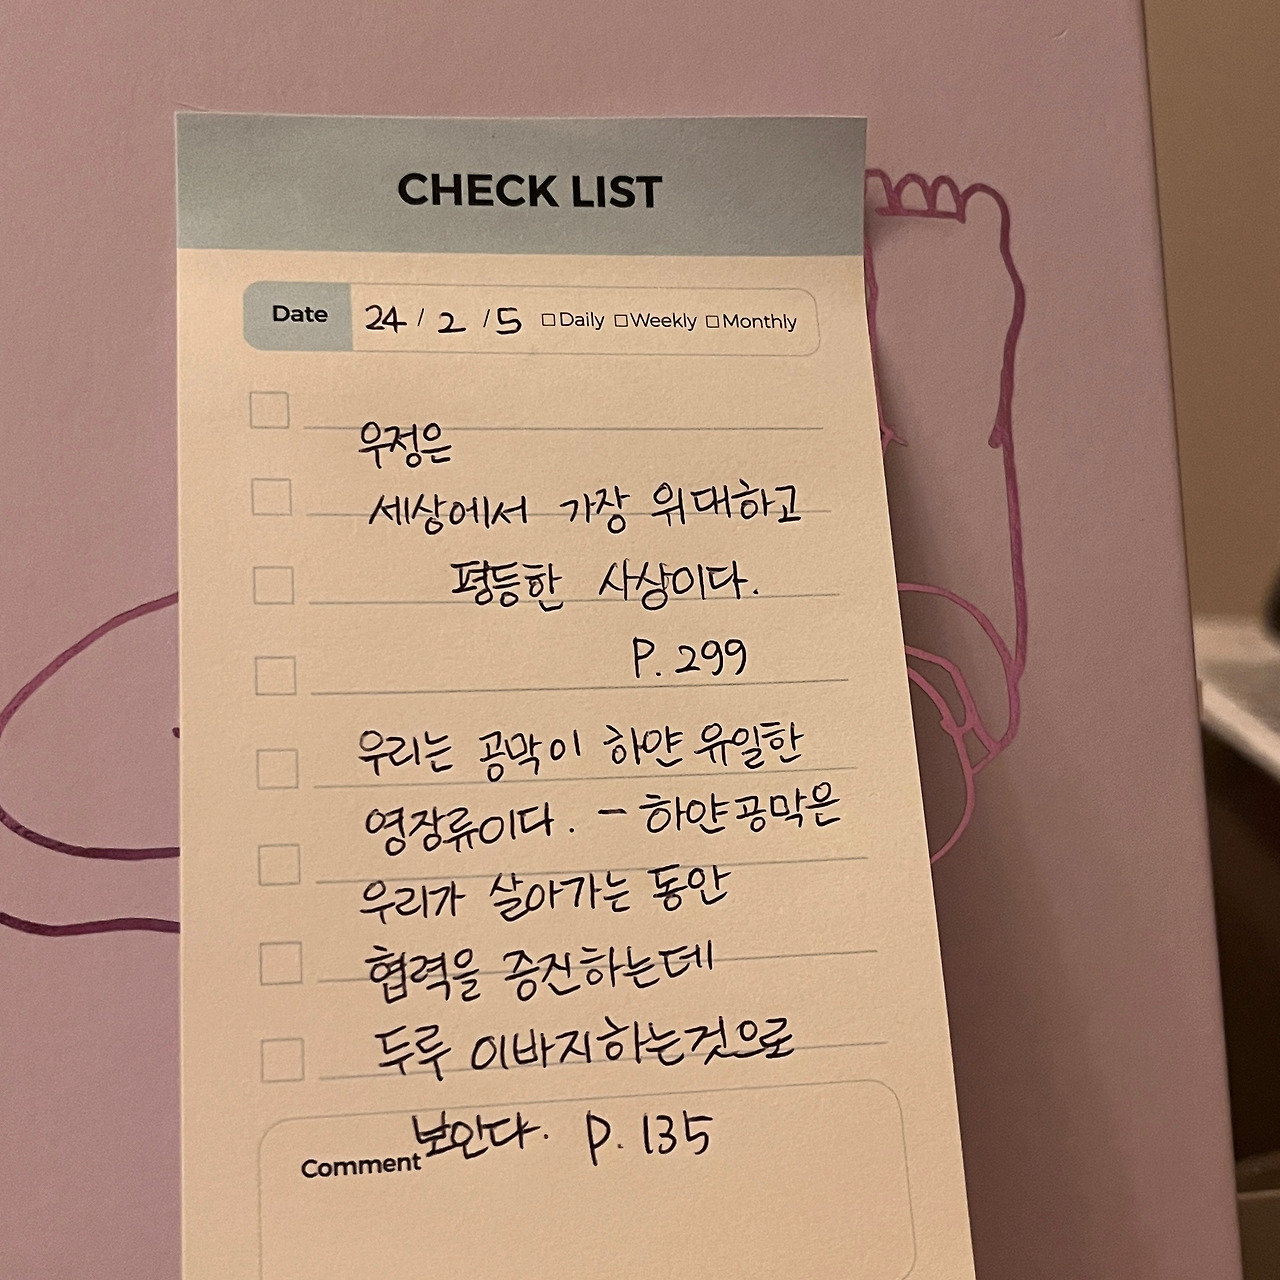 CHECK LIST
Date 24 / 2 / 5 □Daily □Weekly □Monthly
우정은
세상에서 가장 위대하고
평등한 사상이다.
P. 299
우리는 공막이 하얀 유일한
영장류이다. - 하얀공막은
우리가 살아가는 동안
협력을 증진하는데
두루 이바지하는것으로
보인다. P. 135
Comment